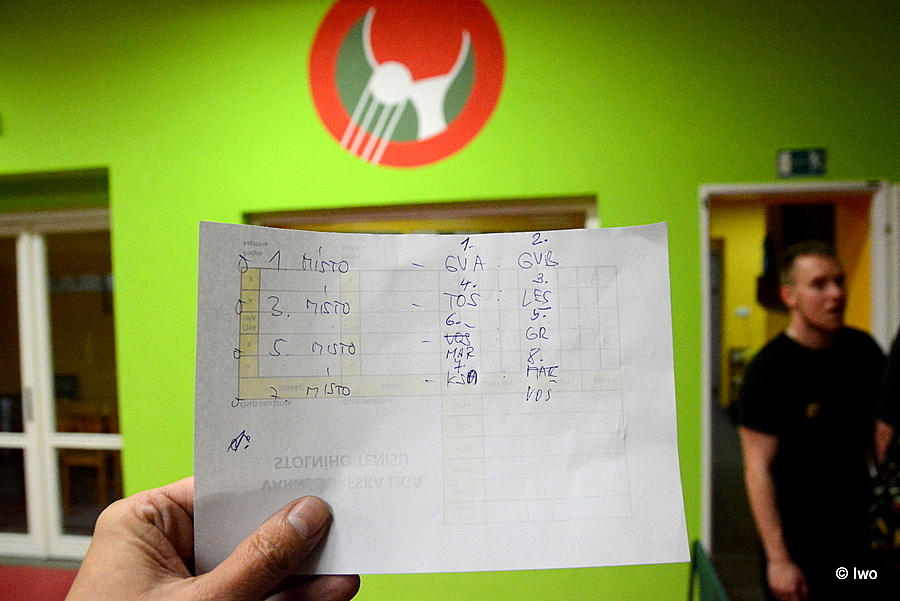 1. 2.
1. MÍSTO - GVA : GVB
4. 3.
3. MÍSTO - TOS : LES
6. 5.
5. MÍSTO - VOS : GR
MAR 8.
7.
7. MÍSTO - KSA : MAR
VOS
STOLNÍHO TENISU
VARNSDORFSKÁ LIGA
© Iwo